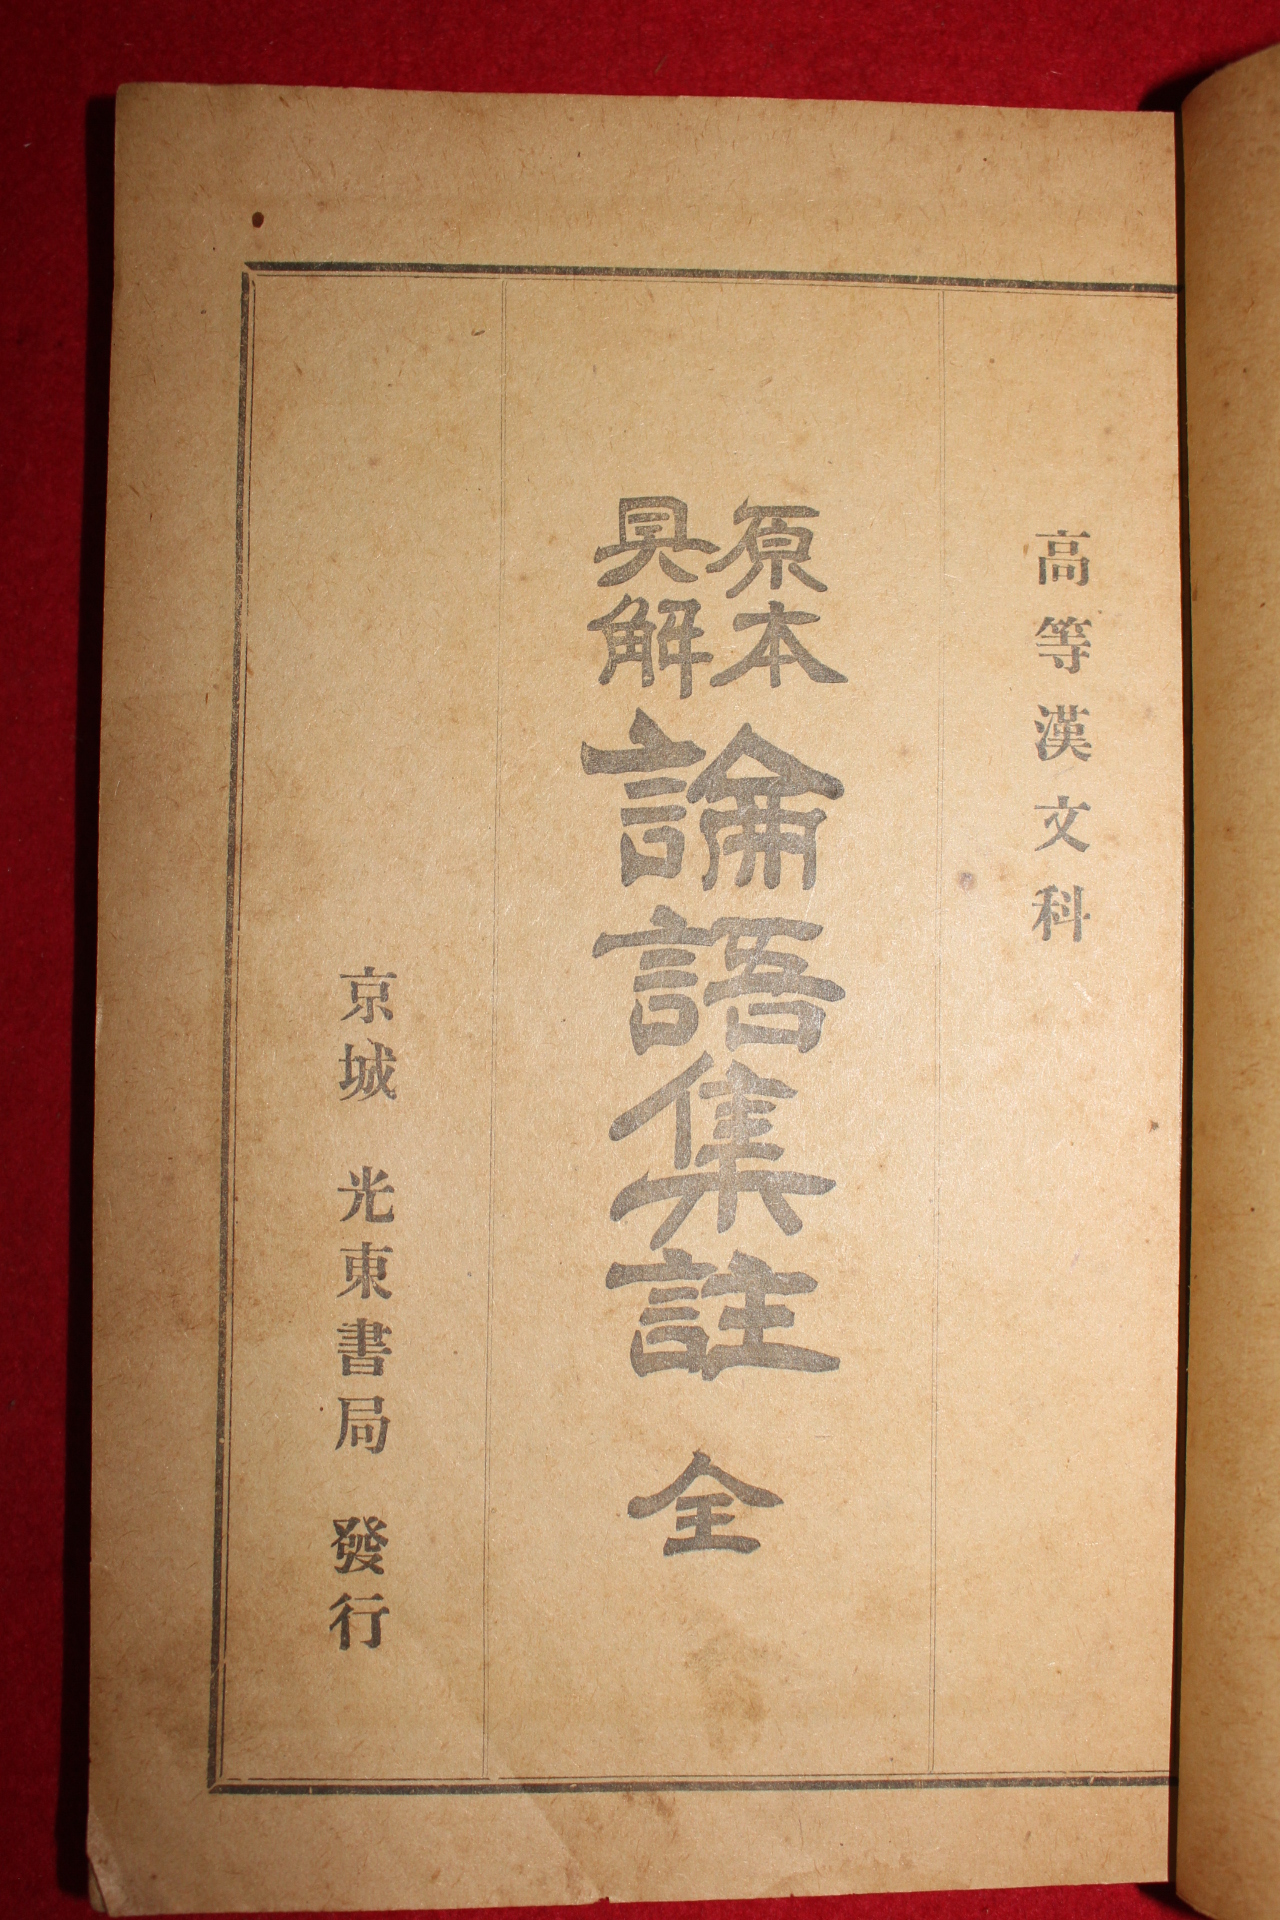 高等漢文科
原本
具解
論語集註 全
京城 光東書局 發行